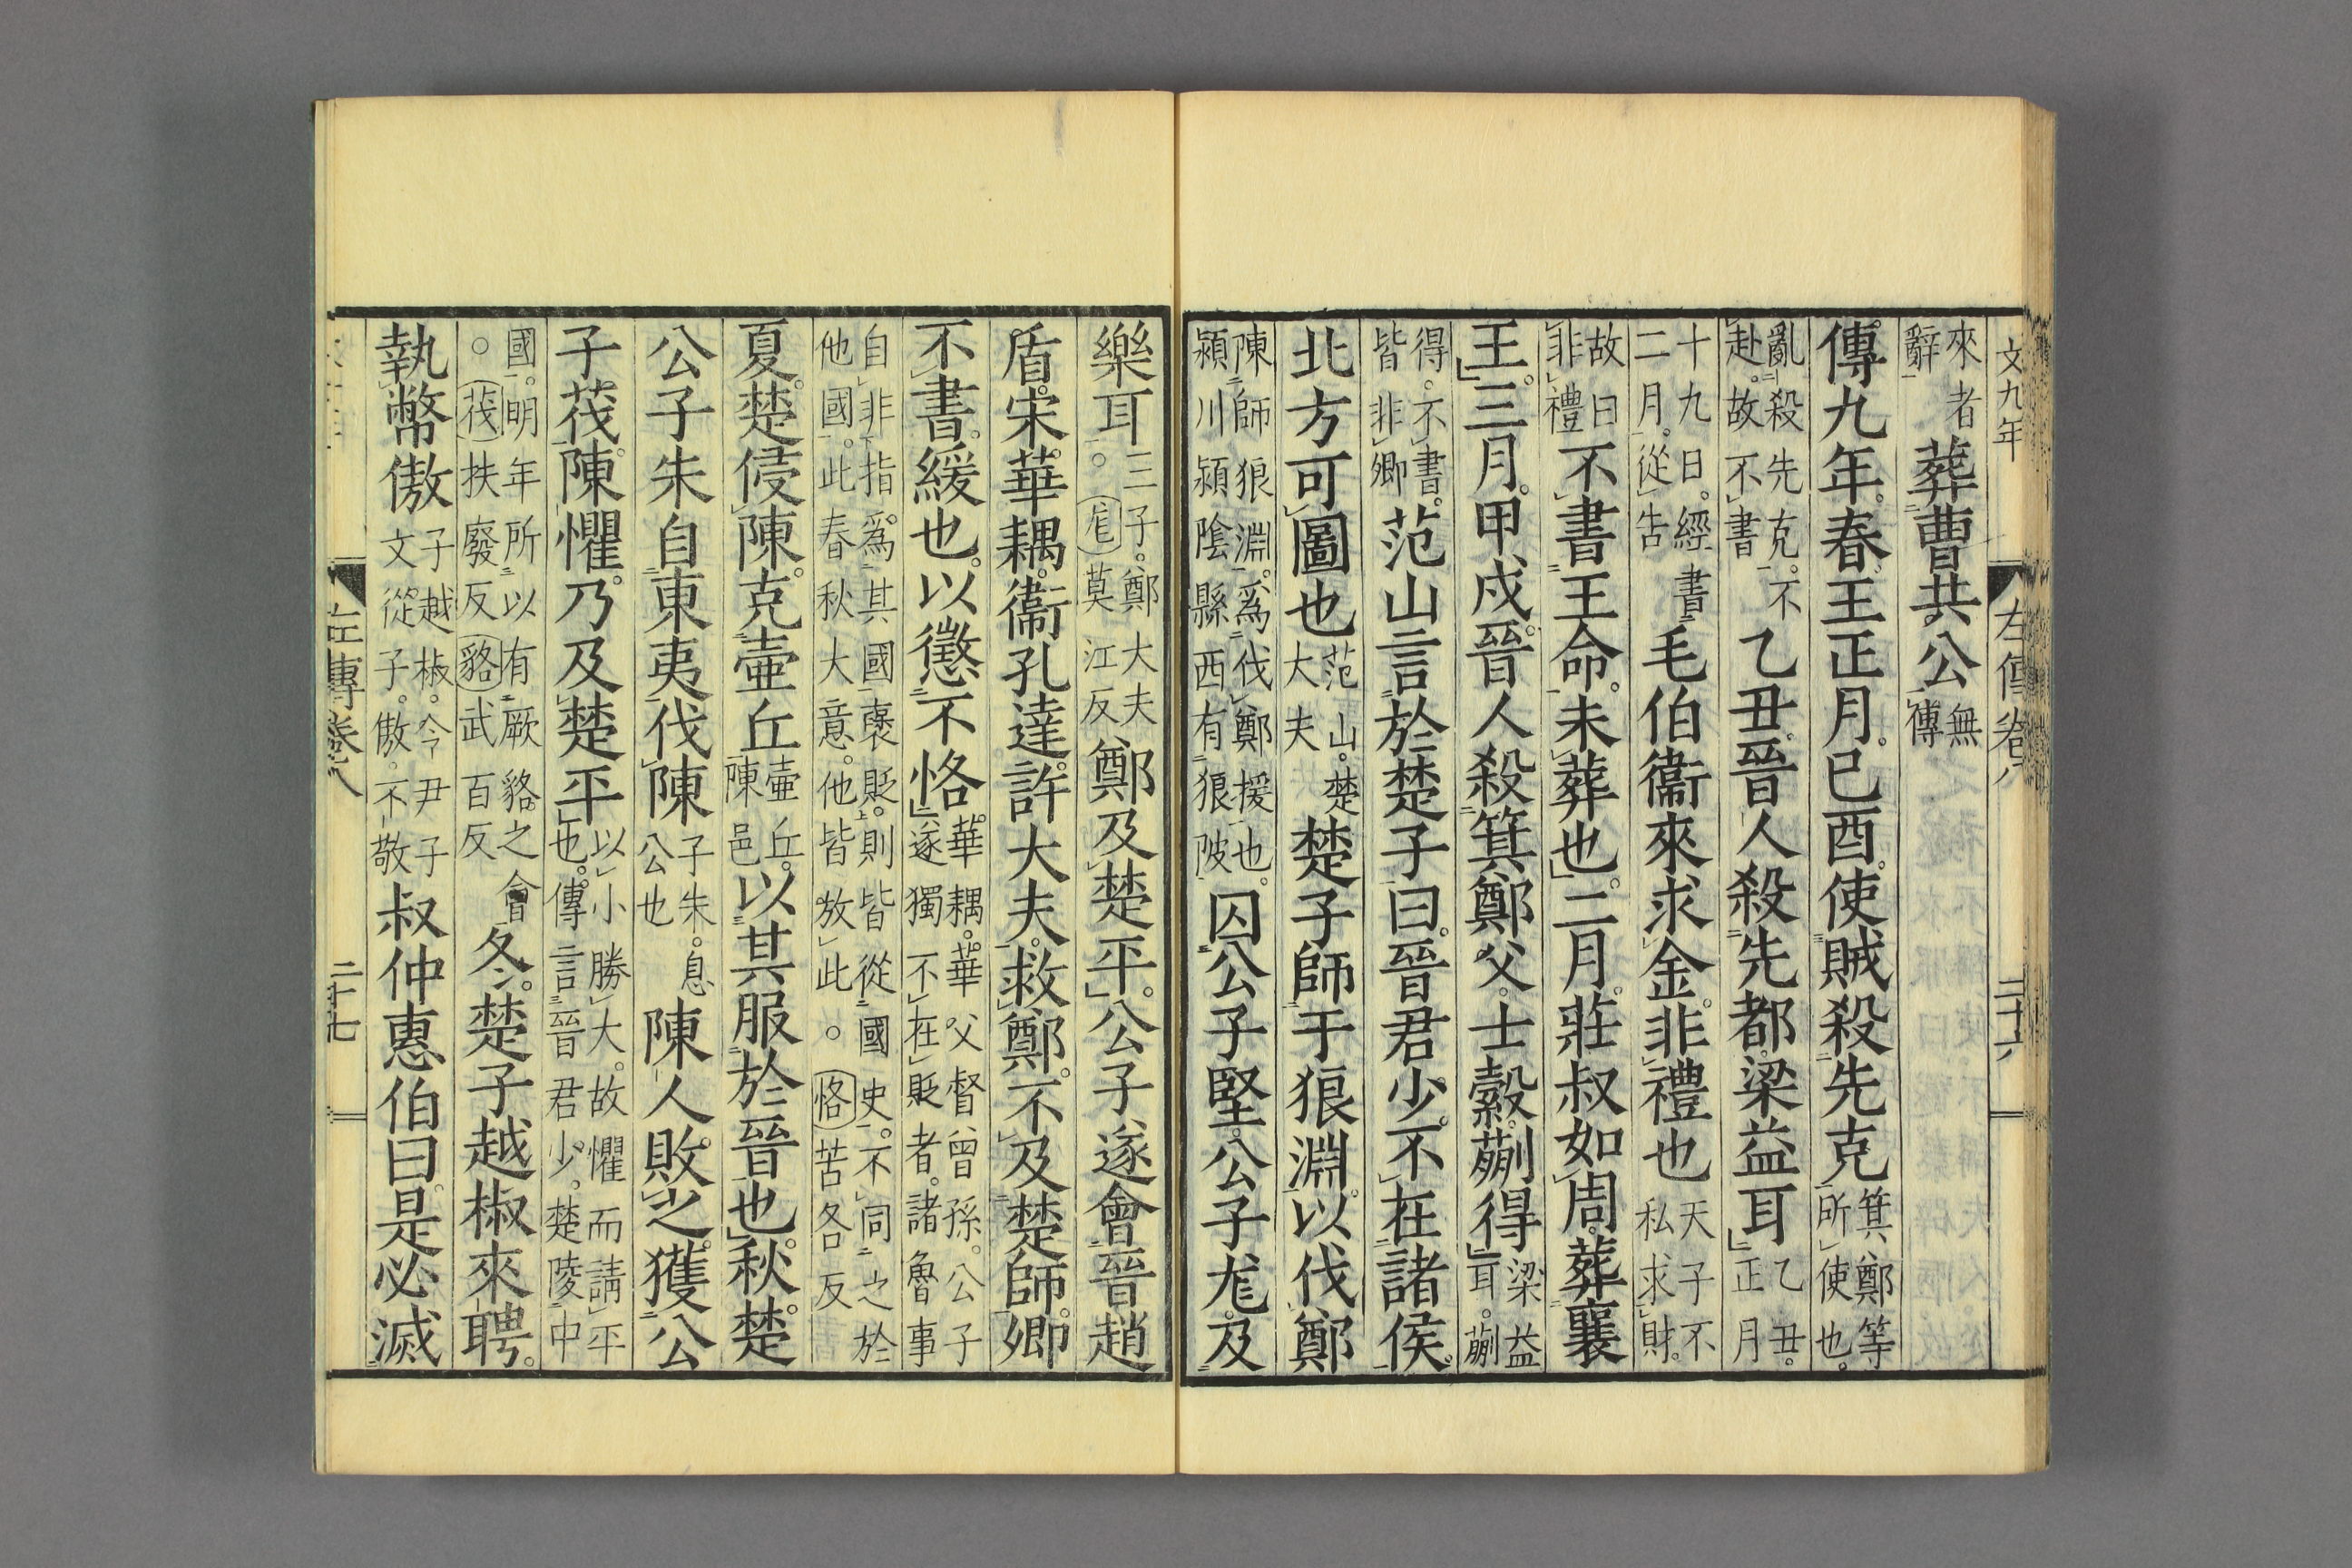 文九年　左傳卷八　二十六
來者辭葬曹共公無傳
傳九年。春王正月。己酉。使賊殺先克箕鄭等所使也。
亂殺先克。不赴。故不書乙丑。晉人殺先都。梁益耳乙丑。正月
十九日。經書二月。從告毛伯衞來求金。非禮也天子不私求財。
故曰非禮不書王命。未葬也。二月。莊叔如周。葬襄
王。三月。甲戌。晉人殺箕鄭父。士縠。蒯得梁益耳。蒯
得。不書。皆非卿范山言於楚子曰。晉君少。不在諸侯。
北方可圖也范山。楚大夫楚子師于狼淵。以伐鄭
陳師狼淵。爲伐鄭援也。潁川潁陰縣西有狼陂囚公子堅。公子尨。及
樂耳三子。鄭大夫。○尨莫江反鄭及楚平。公子遂會晉趙
盾。宋華耦。衞孔達。許大夫。救鄭。不及楚師。卿
不書。緩也。以懲不恪華耦。華父督曾孫。公子遂獨不在貶者。諸魯事
自非指爲其國褒貶。則皆從國史。不同之於他國。此春秋大意。他皆放此。○恪苦各反
夏。楚侵陳。克壺丘壺丘。陳邑以其服於晉也。秋。楚
公子朱自東夷伐陳子朱。息公也陳人敗之。獲公
子茷。陳懼。乃及楚平以小勝大。故懼而請平也。傳言晉君少。楚陵中
國。明年所以有厥貉之會。○茷扶廢反貉武百反冬。楚子越椒來聘。
執幣傲子越椒。令尹子文從子。傲。不敬叔仲惠伯曰。是必滅
左傳卷八　二十七